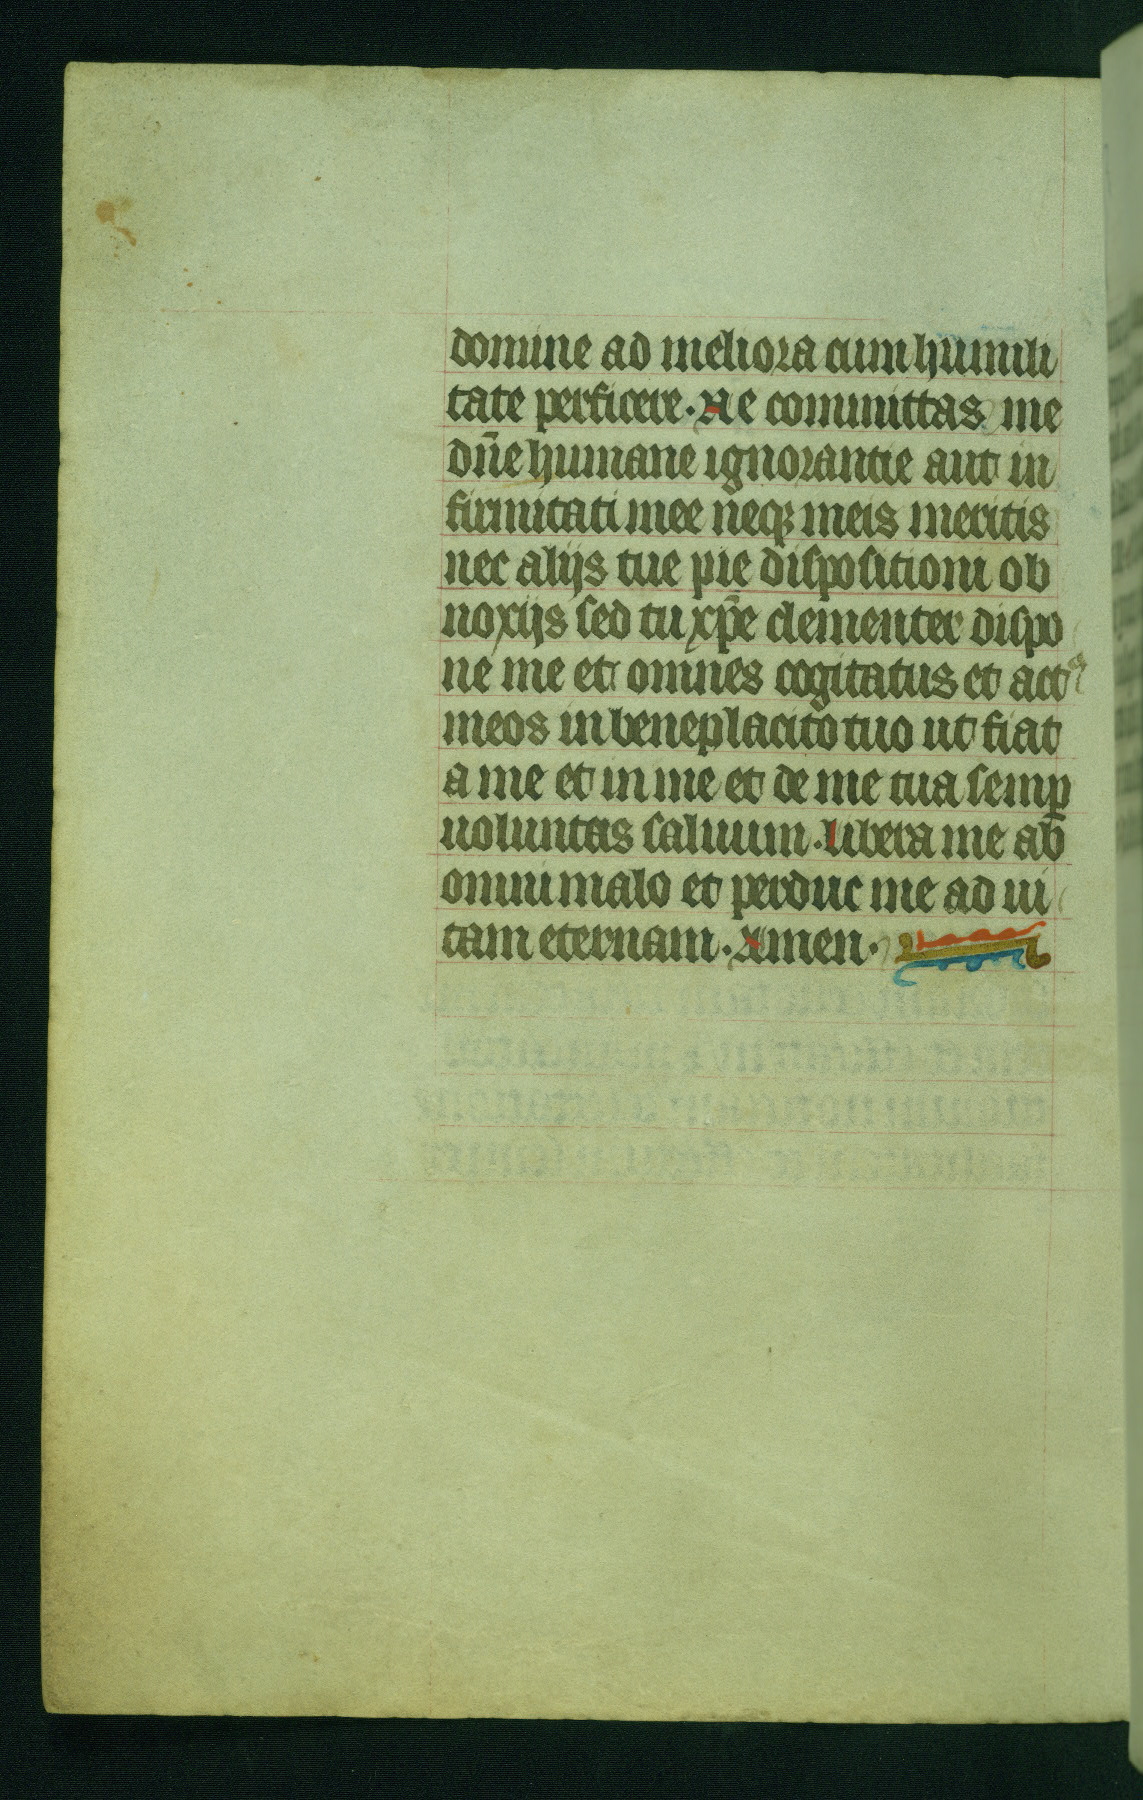 domine ad meliora cum humili
tate perficere. Ne committas me
dn̄e humane ignorantie aut in
firmitati mee neqꝫ meis meritis
nec alijs tue pie dispositioni ob
noxijs sed tu xp̄e clementer dispo
ne me et omnes cogitatus et actꝰ
meos in beneplacito tuo ut fiat
a me et in me et de me tua semꝑ
uoluntas saluum. Libera me ab
omni malo et perduc me ad ui
tam eternam. Amen.